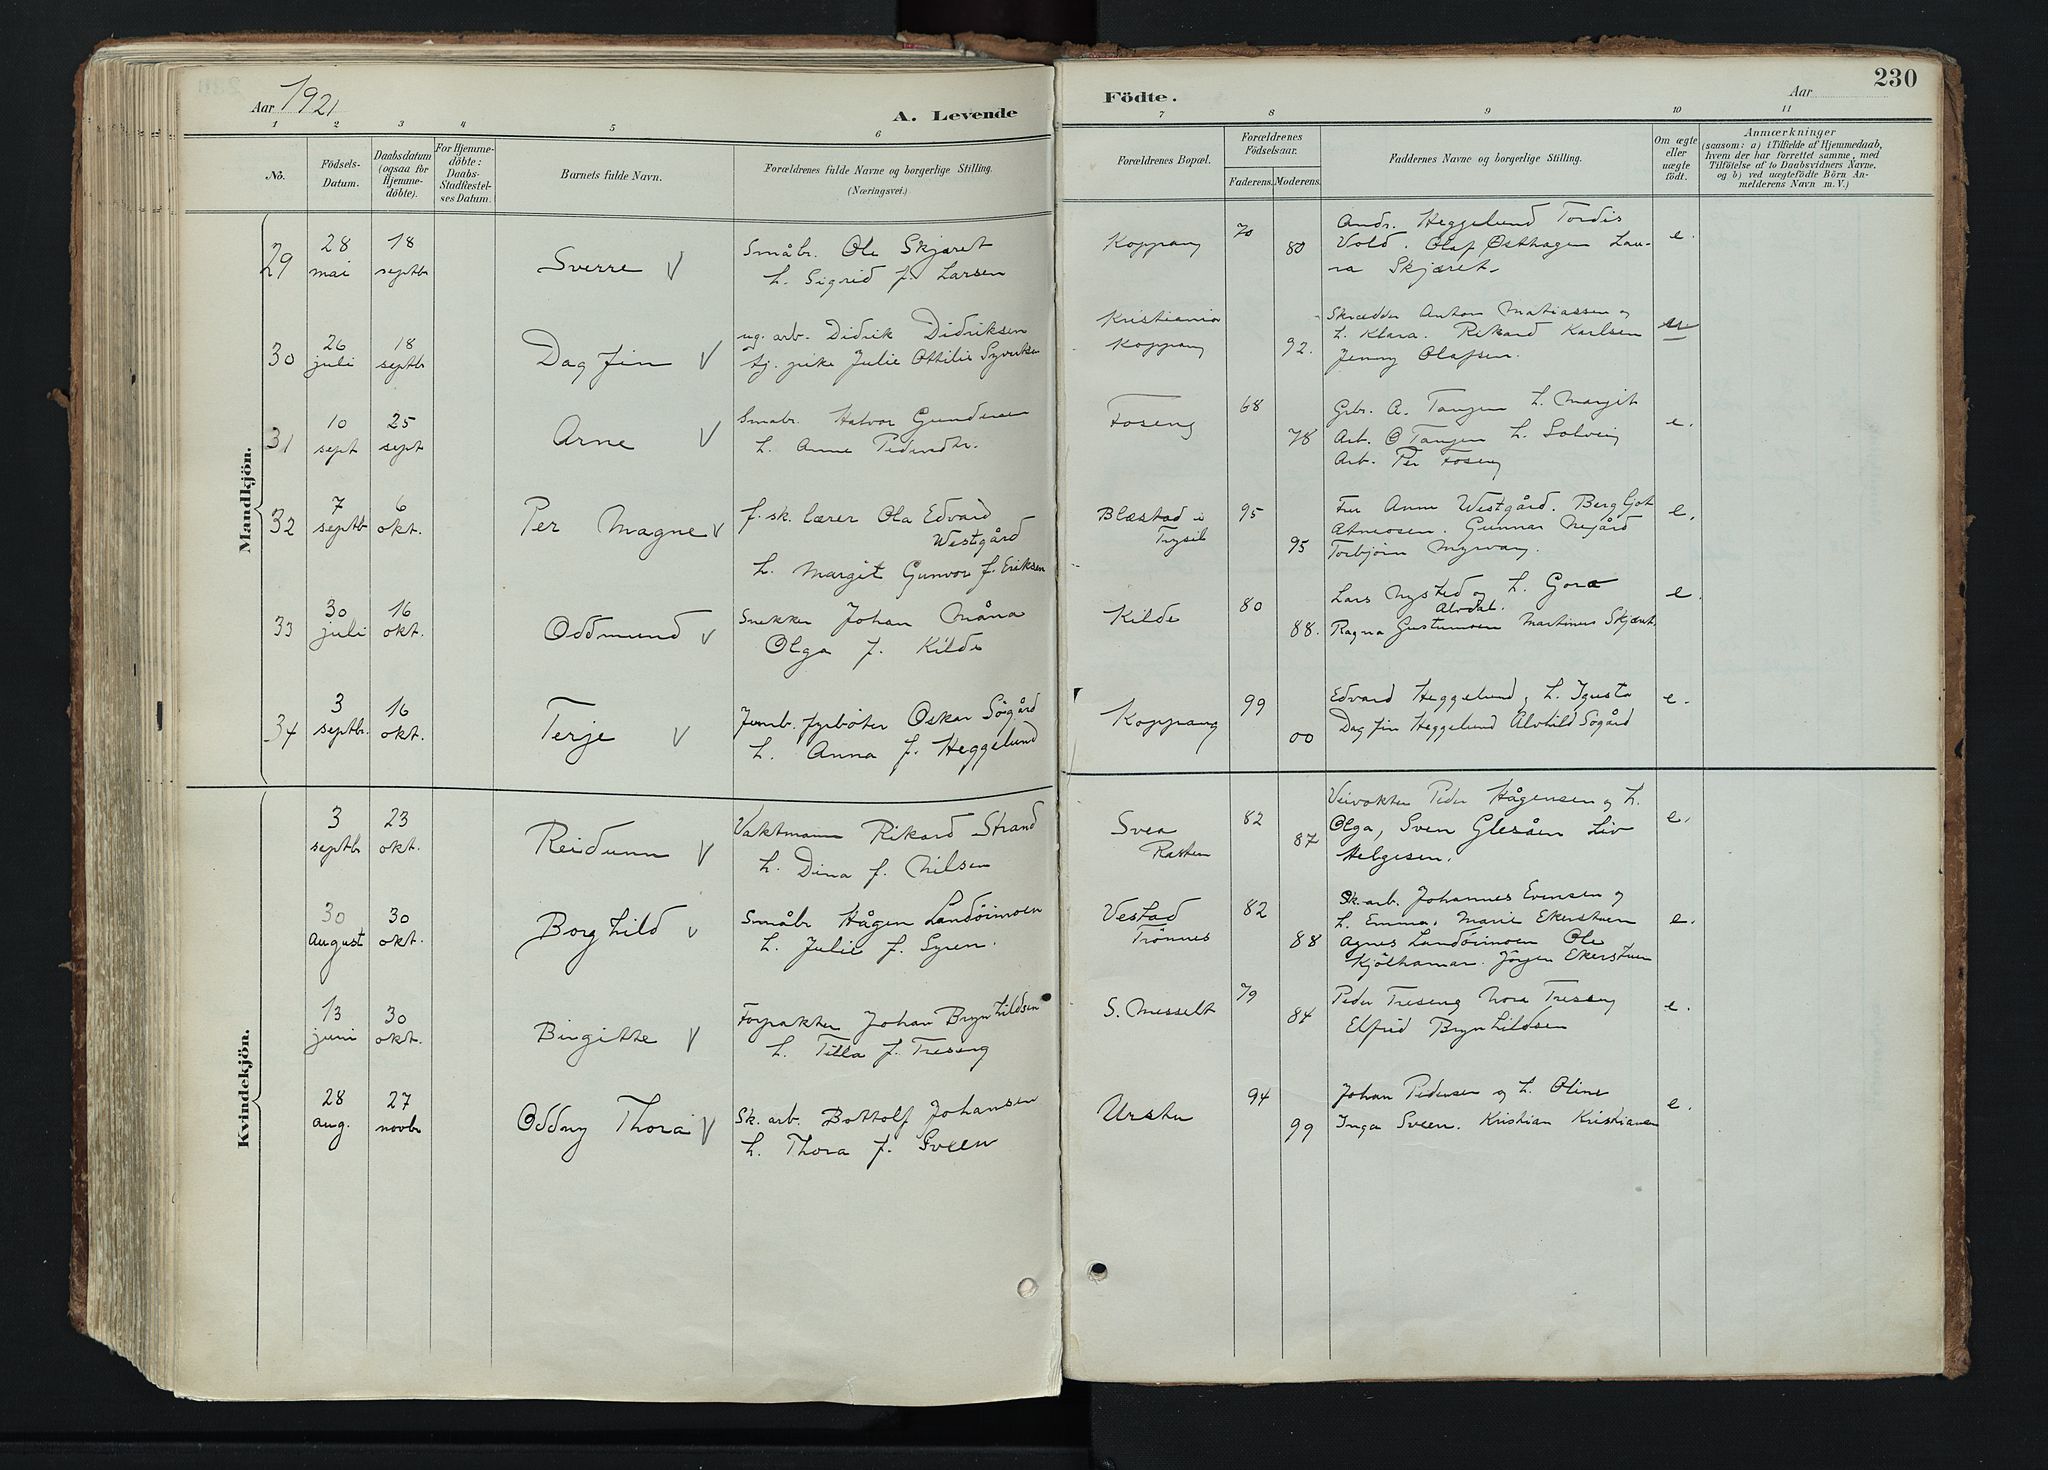 Aar 1921
A. Levende
Födte.
Aar
230
1 2 3 4 5 6 7 8 9 10 11
No.
Födsels-
Datum.
Daabsdatum
(ogsaa for
Hjemme-
döbte).
For Hjemme-
döbte:
Daabs-
Stadfæstel-
ses Datum.
Barnets fulde Navn.
Forældrenes fulde Navne og borgerlige Stilling.
(Næringsvei.)
Forældrenes Bopæl.
Forældrenes
Födselsaar.
Faderens. Moderens.
Faddernes Navne og borgerlige Stilling.
Om ægte
eller
uægte
födt.
Anmærkninger
(saasom: a) i Tilfælde af Hjemmedaab,
hvem der har forrettet samme, med
Tilföielse af to Daabsvidners Navne,
og b) ved uægtefödte Börn An-
melderens Navn m. V.)
Mandkjön.
29
28
mai
18
septbr
Sverre V
Småbr. Ole Skjæret
h. Sigrid f. Larsen
Koppang
70
80
Andr. Heggelund Tordis
Vold. Olaf Østhagen Lau-
ra Skjæret.
e.
30
26
juli
18
septbr
Dagfin V
ug. arb. Didrik Didriksen
tj. pike Julie Ottilie
Kristiania
Koppang
92.
Skrædder Anton Matiassen og
h. Klara. Rikard Karlsen
Jenny Olafsen.
31
10
sept
25
sept
Arne V
Småbr. Halvor Gundersen
h. Anne Pedersdtr.
Foseng
68
78
Grbr. A. Tangen h. Margit
Arb. O Tangen h. Solveig
Arb. Per Foseng
e.
32
7
septbr
6
okt.
Per Magne V
f. sk. lærer Ola Edvard
Westgård
h. Margit Gunvor f. Eriksen
Blæstad i
Trysil
95
95
Fru Anne Westgård. Bergljot
Atneosen. Gunnar Nejård
Torbjørn Myrvang.
e.
33
30
juli
16
okt.
Oddmund V
Snekker Johan Måna
Olga f. Kilde
Kilde
80
88.
Lars Nysted og h. Gora
Alvdal.
Ragna Gustumoen Martinus Skjæret.
e.
34
3
septbr.
16
okt.
Terje V
Jernb. fyrbøter Oskar Søgård
h. Anna f. Heggelund
Koppang
99
00
Edvard Heggelund, h. Igusta
Dagfin Heggelund Alvhild Søgård
e.
Kvindekjön.
3
septbr
23
okt.
Reidunn V
Vaktmann Rikard Strand
h. Dina f. Nilsen
Svea
Rasten
82
87
Veivokter Peder Hågensen og h.
Olga, Sven Glesåen Liv
Helgesen.
e.
30
august
30
okt.
Borghild V
Småbr Hågen Landörimoen
h. Julie f. Syren.
Vestad
Trönnes
82
88
Sk. arb. Johannes Evensen og
h. Emma. Marie Ekerstuen
Agnes Landörimoen Ole
Kjölhamar. Jörgen Ekerstuen
e.
13
juni
30
okt.
Birgitte V
Forpakter Johan Brynhildsen
h. Tilla f. Treseng
S. Messelt
79
84
Peder Treseng Nora Treseng
Elfrid Brynhildsen
e.
28
aug.
27
novbr
Oddny Thora V
Sk. arb. Bottolf Johansen
h. Thora f. Sveen
Urstu
94
99
Johan Pedersen og h. Oline
Inga Sveen. Kristian Kristiansen
e.